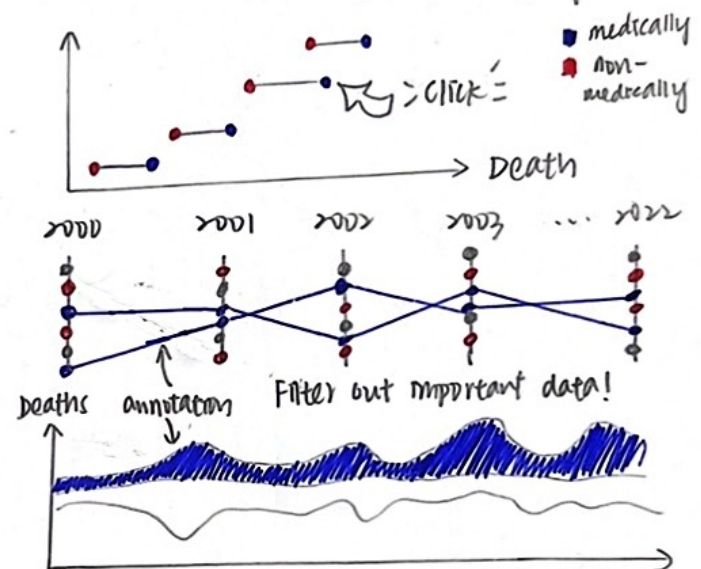 medically
non-
medically
Click
Death
2000 2001 2002 2003 ... 2022
Deaths annotation Filter out important data!